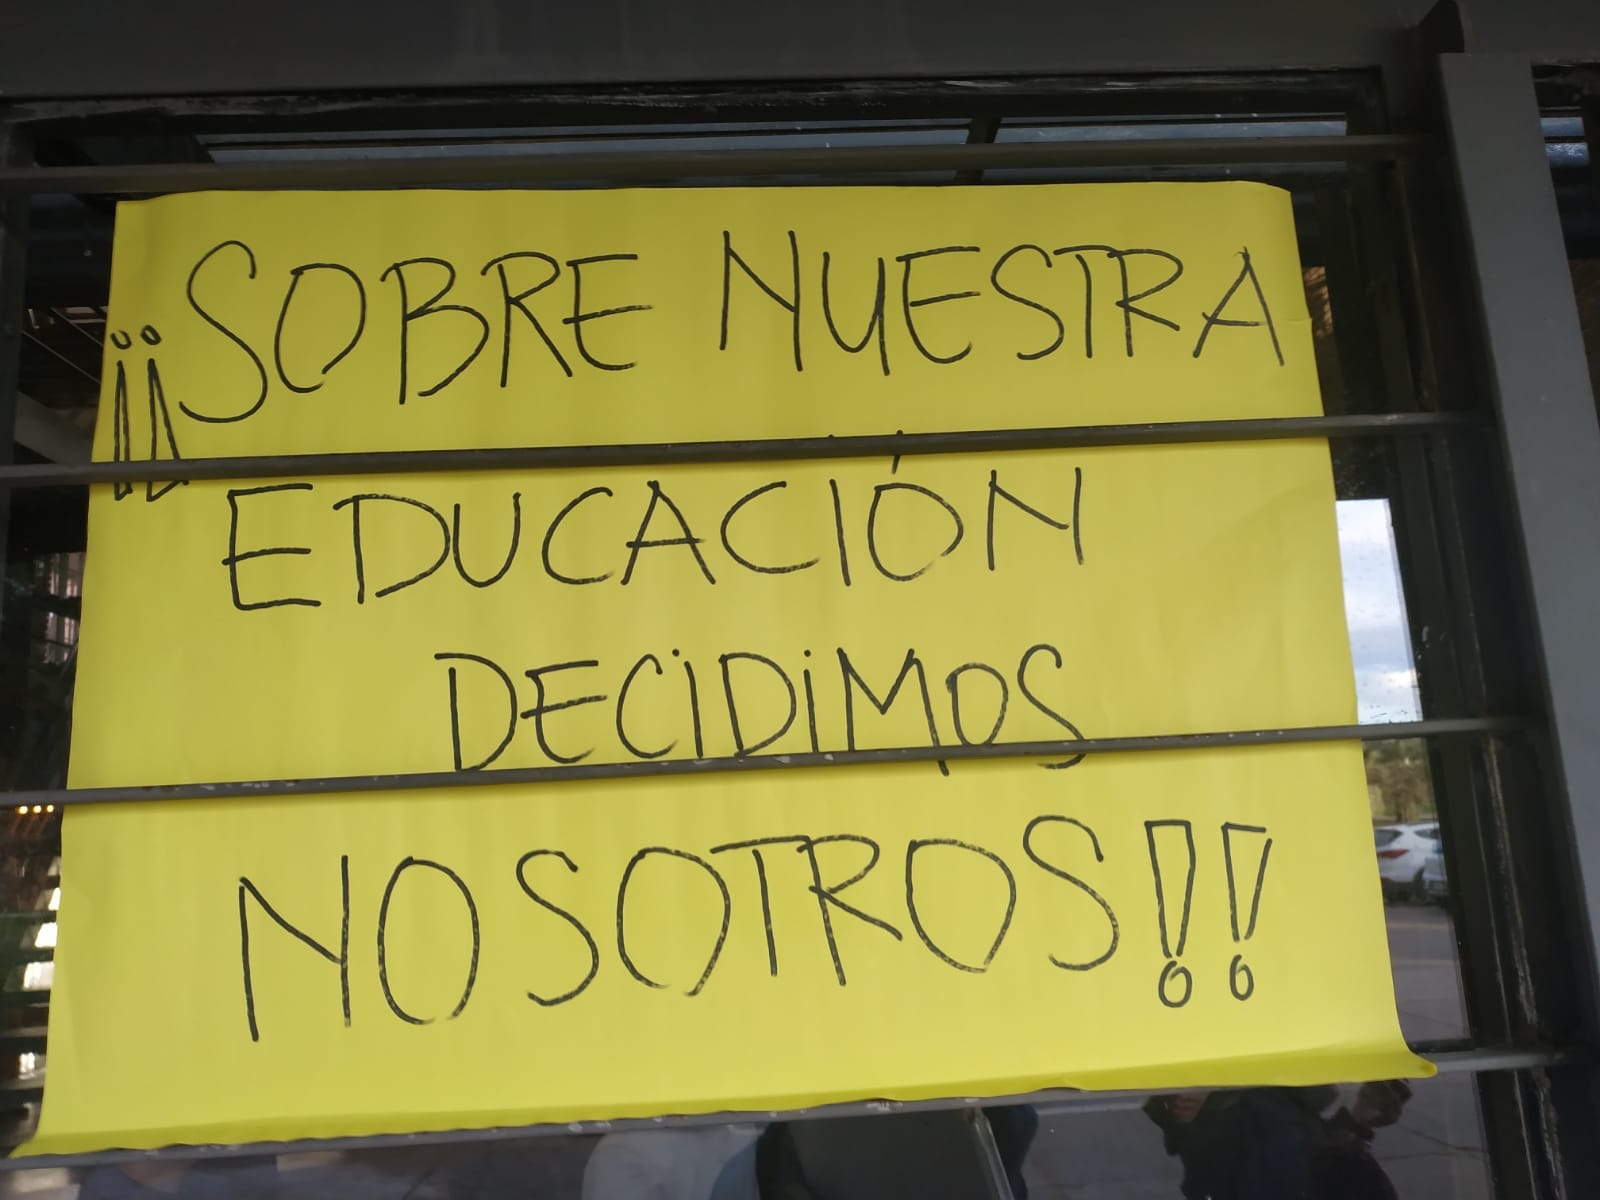 ¡¡SOBRE NUESTRA
EDUCACIÓN
DECIDIMOS
NOSOTROS!!